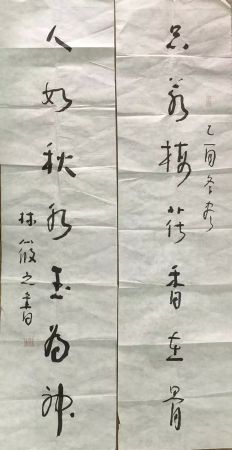 品若梅花香在骨
乙酉冬
人如秋水玉為神
林筱之書